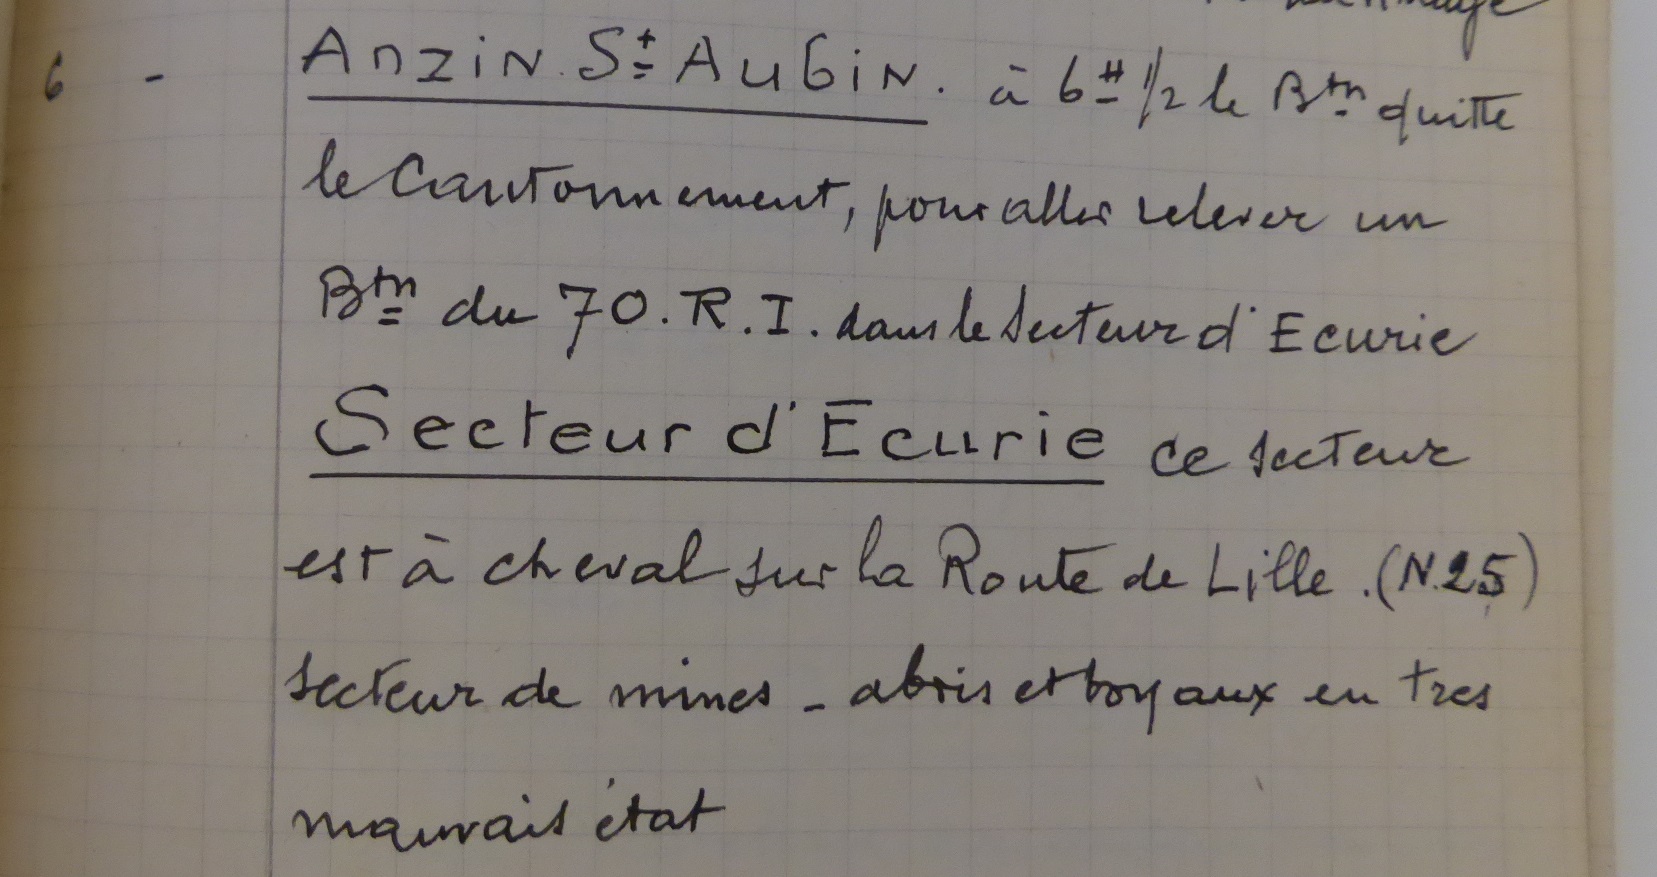 6 - Anzin St Aubin. à 6H 1/2 le Btn quitte
le Cantonnement, pour aller relever un
Btn du 70.R.I. dans le secteur d'Ecurie
Secteur d'Ecurie ce secteur
est à cheval sur la Route de Lille. (N.25)
secteur de mines - abris et boyaux en tres
mauvais état